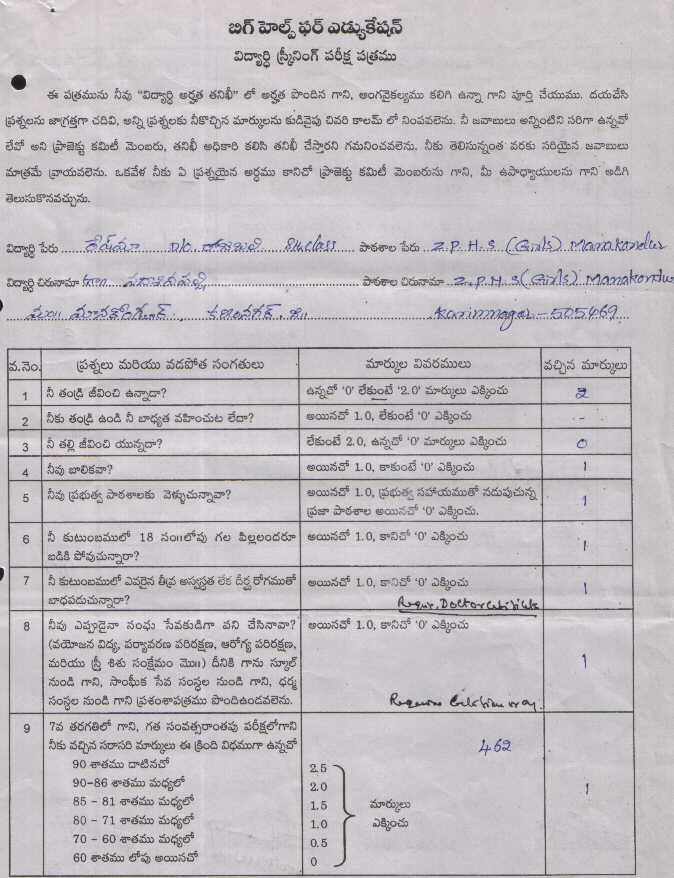 బిగ్ హెల్ప్ ఫర్ ఎడ్యుకేషన్
విద్యార్ధి స్క్రీనింగ్ పరీక్ష పత్రము
ఈ పత్రమును నీవు "విద్యార్ధి అర్హత తనిఖీ" లో అర్హత పొందిన గాని, అంగవైకల్యము కలిగి ఉన్నా గాని పూర్తి చేయుము. దయచేసి
ప్రశ్నలను జాగ్రత్తగా చదివి, అన్ని ప్రశ్నలకు నీకొచ్చిన మార్కులను కుడివైపు చివరి కాలమ్ లో నింపవలెను. నీ జవాబులు అన్నింటిని సరిగా ఉన్నవో
లేవో అని ప్రాజెక్టు కమిటీ మెంబరు, తనిఖీ అధికారి కలిసి తనిఖీ చేస్తారని గమనించవలెను. నీకు తెలిసున్నంత వరకు సరియైన జవాబులు
మాత్రమే వ్రాయవలెను. ఒకవేళ నీకు ఏ ప్రశ్నయైన అర్ధము కానిచో ప్రాజెక్టు కమిటీ మెంబరును గాని, మీ ఉపాధ్యాయులను గాని అడిగి
తెలుసుకొనవచ్చును.
విద్యార్ధి పేరు D/o class పాఠశాల పేరు Z.P.H.S (Girls) Manakondur
విద్యార్ధి చిరునామా పాఠశాల చిరునామా Z.P.H.S (Girls) Manakondur
Karimnagar-505469
వ.నెం. ప్రశ్నలు మరియు వడపోత సంగతులు మార్కుల వివరములు వచ్చిన మార్కులు
1 నీ తండ్రి జీవించి ఉన్నాడా? ఉన్నచో '0' లేకుంటే '2.0' మార్కులు ఎక్కించు 2
2 నీకు తండ్రి ఉండి నీ బాధ్యత వహించుట లేదా? అయినచో 1.0, లేకుంటే '0' ఎక్కించు -
3 నీ తల్లి జీవించి యున్నదా? లేకుంటే 2.0, ఉన్నచో '0' మార్కులు ఎక్కించు 0
4 నీవు బాలికవా? అయినచో 1.0, కాకుంటే '0' ఎక్కించు 1
5 నీవు ప్రభుత్వ పాఠశాలకు వెళ్ళుచున్నావా? అయినచో 1.0, ప్రభుత్వ సహాయముతో నడుపుచున్న
ప్రజా పాఠశాల అయినచో '0' ఎక్కించు. 1
6 నీ కుటుంబములో 18 సం॥లోపు గల పిల్లలందరూ అయినచో 1.0, కానిచో '0' ఎక్కించు
బడికి పోవుచున్నారా? 1
7 నీ కుటుంబములో ఎవరైన తీవ్ర అస్వస్థత లేక దీర్ఘ రోగముతో అయినచో 1.0, కానిచో '0' ఎక్కించు 1
బాధపడుచున్నారా? Requr. Doctor
8 నీవు ఎప్పుడైనా సంఘ సేవకుడిగా పని చేసినావా? అయినచో 1.0, కానిచో '0' ఎక్కించు
(వయోజన విద్య, పర్యావరణ పరిరక్షణ, ఆరోగ్య పరిరక్షణ,
మరియు స్త్రీ శిశు సంక్షేమం మొ॥) దీనికి గాను స్కూల్ 1
నుండి గాని, సాంఘీక సేవ సంస్థల నుండి గాని, ధర్మ
సంస్థల నుండి గాని ప్రశంశాపత్రము పొందిఉండవలెను.
9 7వ తరగతిలో గాని, గత సంవత్సరాంతపు పరీక్షలోగాని
నీకు వచ్చిన సరాసరి మార్కులు ఈ క్రింది విధముగా ఉన్నచో 462
90 శాతము దాటినచో 2.5
90-86 శాతము మధ్యలో 2.0 1
85 - 81 శాతము మధ్యలో 1.5 మార్కులు
80 - 71 శాతము మధ్యలో 1.0 ఎక్కించు
70 - 60 శాతము మధ్యలో 0.5
60 శాతము లోపు అయినచో 0